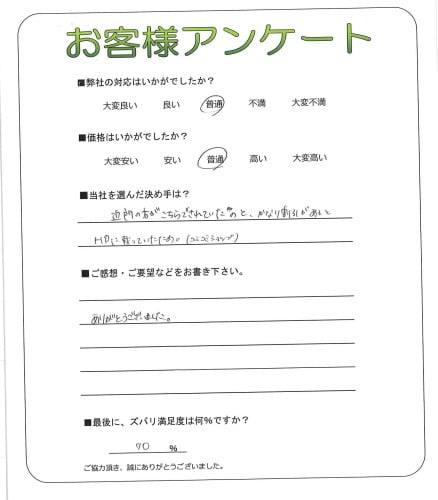 お客様アンケート
■弊社の対応はいかがでしたか？
大変良い 良い 普通 不満 大変不満
■価格はいかがでしたか？
大変安い 安い 普通 高い 大変高い
■当社を選んだ決め手は？
近所の方がこちらでされていたのと、かなり割引があると
HPに載っていたため（コミコミショップ）
■ご感想・ご要望などをお書き下さい。
ありがとうございました。
■最後に、ズバリ満足度は何%ですか？
70 %
ご協力頂き、誠にありがとうございました。